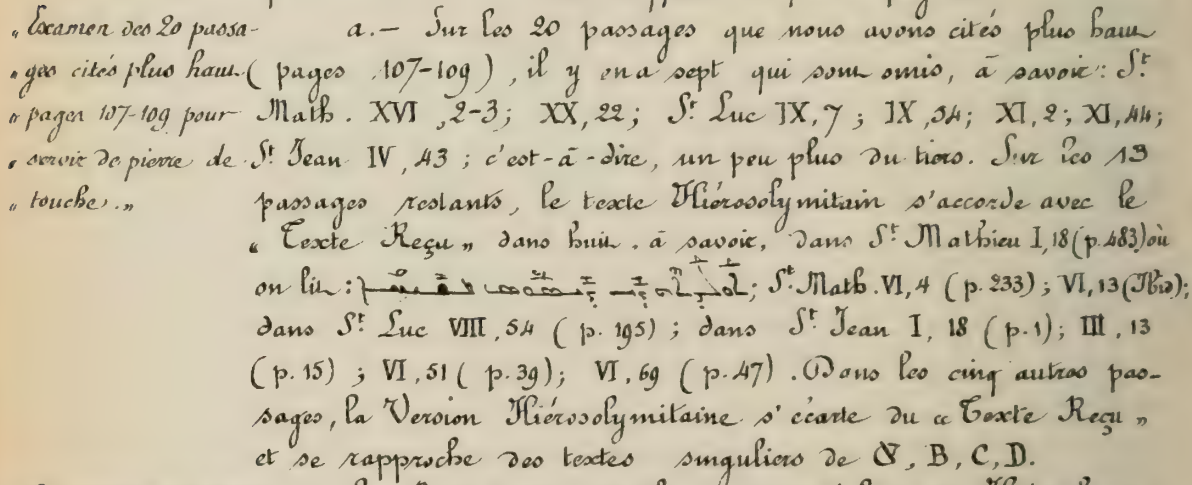 „ Examen des 20 passa-
„ ges cités plus haut
„ pages 107-109 pour
„ servir de pierre de
„ touche. „
a.— Sur les 20 passages que nous avons cités plus haut
( pages 107-109 ), il y en a sept qui sont omis, à savoir: St
Math. XVI, 2-3; XX, 22; St Luc IX, 7; IX, 54; XI, 2; XI, 44;
St Jean IV, 43; c'est-à-dire, un peu plus du tiers. Sur les 13
passages restants, le texte Hiérosolymitain s'accorde avec le
« Texte Reçu » dans huit, à savoir, dans St Mathieu I, 18 (p. 483) où
on lit: ; St Math. VI, 4 ( p. 233) ; VI, 13 (Ibid);
dans St Luc VIII, 54 ( p. 195) ; dans St Jean I, 18 ( p. 1); III, 13
( p. 15) ; VI, 51 ( p. 39); VI, 69 ( p. 47) . Dans les cinq autres pas-
sages, la Version Hiérosolymitaine s'écarte du « Texte Reçu »
et se rapproche des textes singuliers de א, B, C, D.